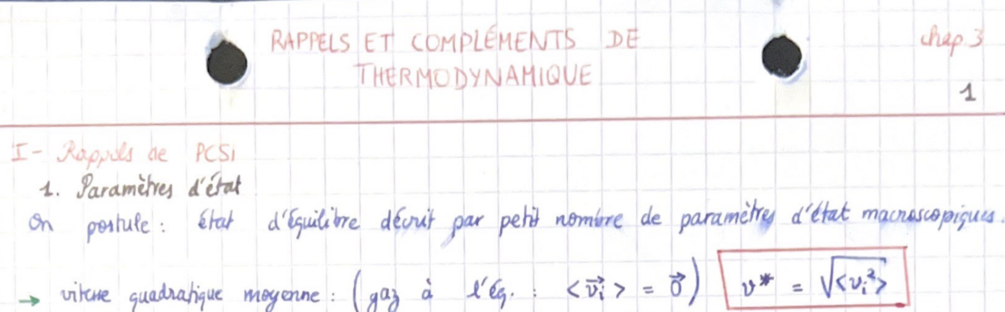 RAPPELS ET COMPLÉMENTS DE
THERMODYNAMIQUE
chap 3
1
I - Rappels de PCSI
1. Paramètres d'état
On postule : état d'équilibre décrit par petit nombre de paramètres d'état macroscopiques.
→ vitesse quadratique moyenne : (gaz à l'éq. : <v⃗ᵢ> = 0⃗) v* = √<vᵢ²>